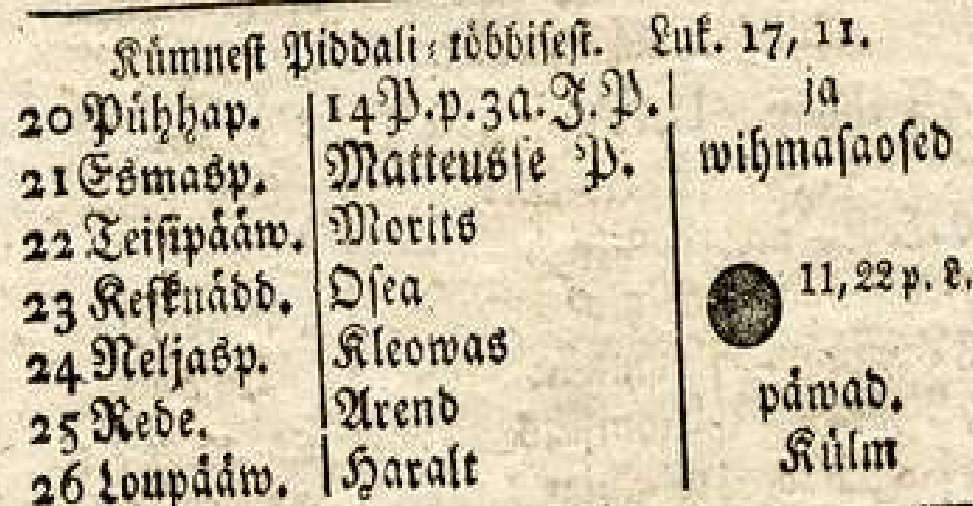 Kümnest Piddali-többisest. Luk. 17, 11.
20 Pühhap. 14 P. p. 3a. J. P. ja
21 Esmasp. Matteusse P. wihmasaosed
22 Teisipääw. Morits
23 Kesknädd. Osea 11, 22 p. L.
24 Neljasp. Kleowas
25 Rede. Arend päwad.
26 Loupääw. Haralt Külm